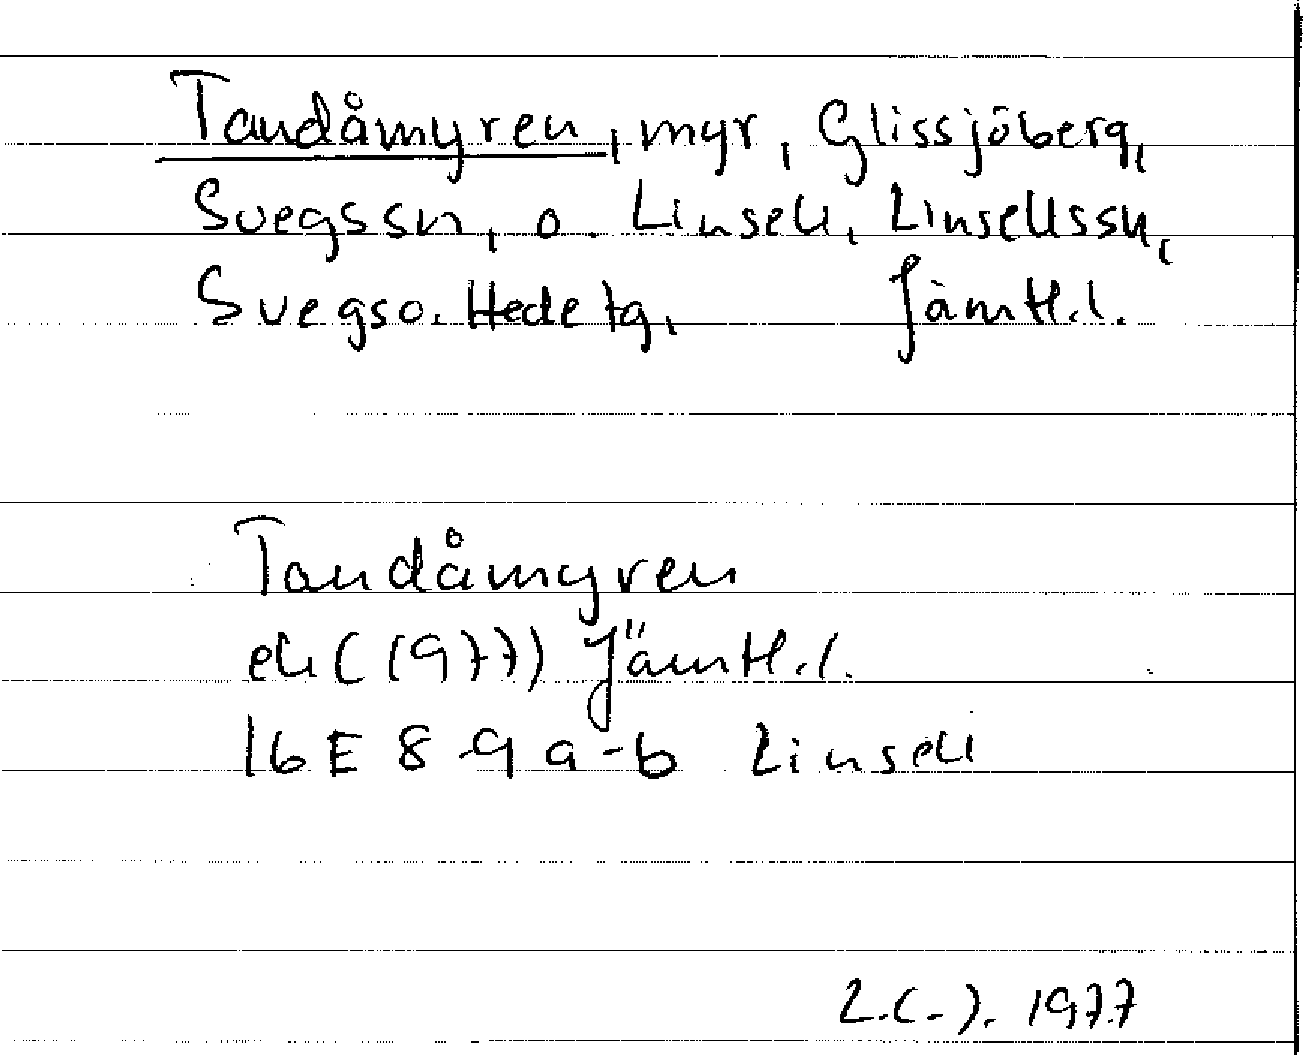 Tandåmyren, myr, Glissjöberg,
Svegssn, o. Linsell, Linsellssn,
Svegs o. Hede tg, Jämtl.l.
Tandåmyren
ek (1977) Jämtl.l.
16E 8-9 a-b Linsell
1977